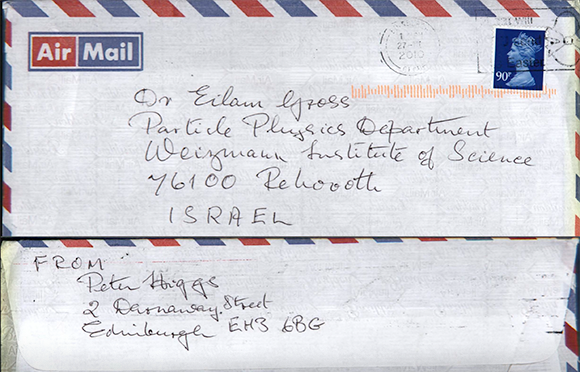 Air Mail
2010
90P
Dr Eilam Gross
Particle Physics Department
Weizmann Institute of Science
76100 Rehovoth
ISRAEL
FROM
Peter Higgs
2 Darnaway Street
Edinburgh EH3 6BG